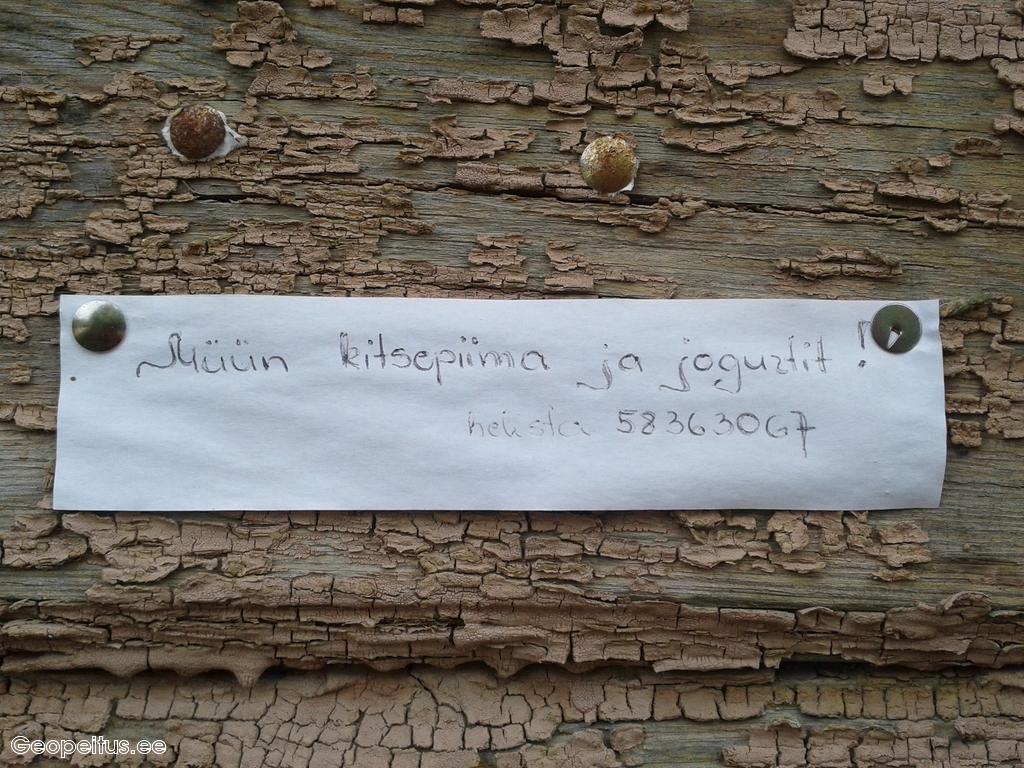 Müün kitsepiima ja jogurtit!
helista 58363067
Geopeitus.ee